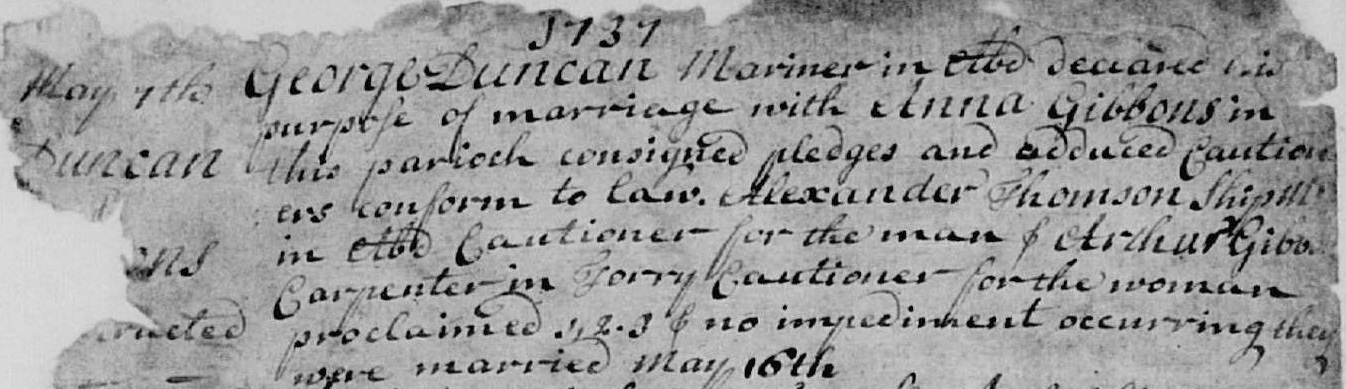 1737
May 7th George Duncan Mariner in Abd declared his
purpose of marriage with Anna Gibbons in
Duncan this parioch consigned pledges and adduced Caution
ers conform to law. Alexander Thomson Shipmr
in Abd Cautioner for the man & Arthur Gibb
ons Carpenter in Torry Cautioner for the woman
ructed proclaimed 1, 2. 3 & no impediment occurring they
were married May 16th